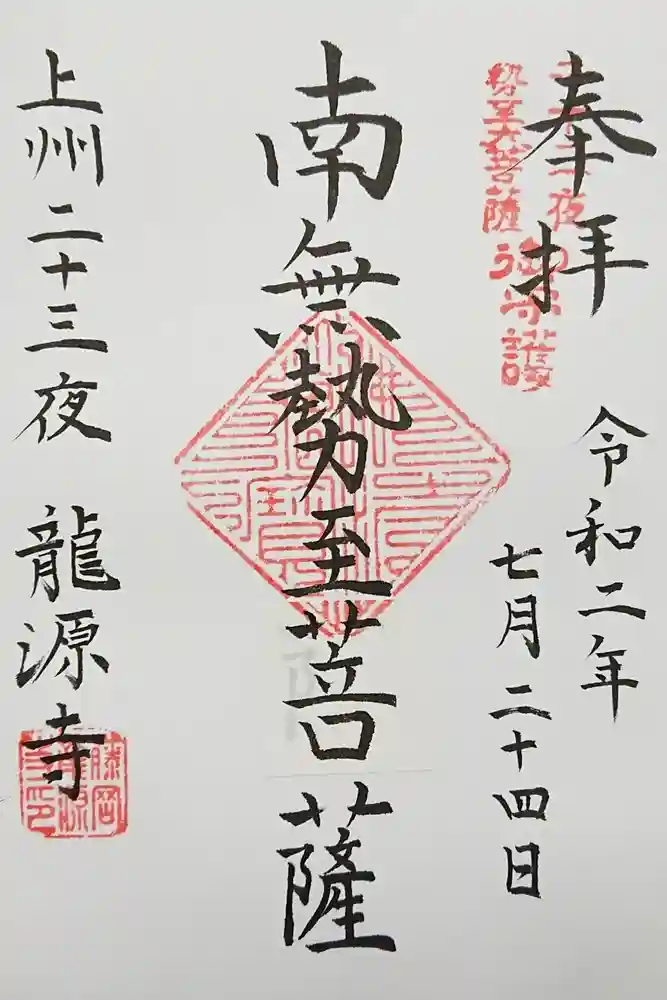 奉拝
二十三夜
勢至大菩薩
御守護
令和二年
七月二十四日
南無勢至菩薩
上州二十三夜 龍源寺
藤岡
龍源
寺印